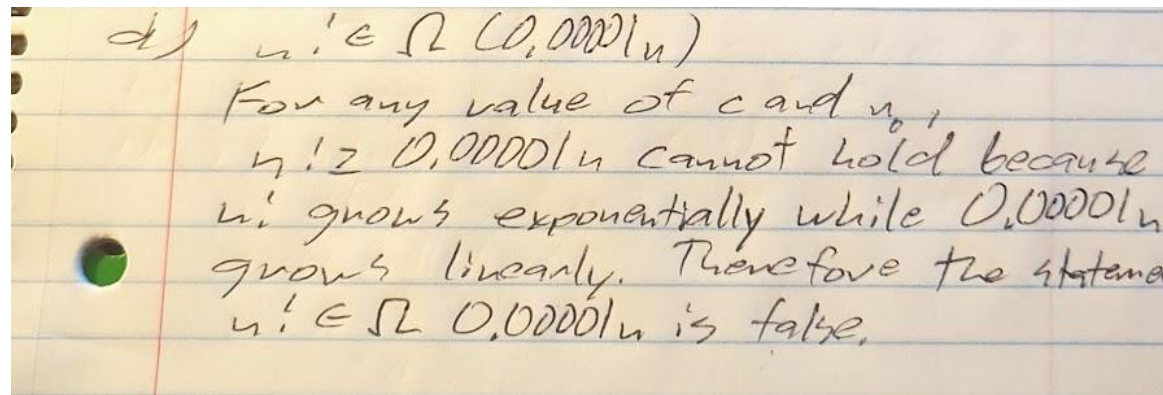 d) n! ∈ Ω (0,00001n)
For any value of c and n₀,
n! ≥ 0,00001n cannot hold because
n! grows exponentially while 0,00001n
grows linearly. Therefore the stateme
n! ∈ Ω 0,00001n is false.